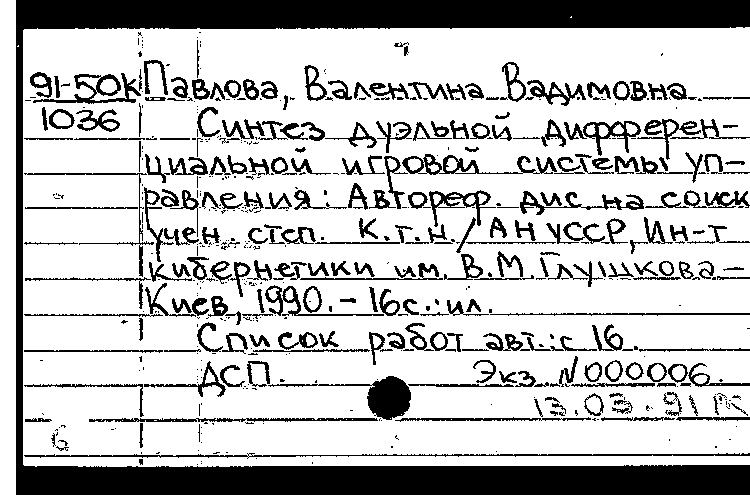 91-50к Павлова, Валентина Вадимовна
1036 Синтез дуэльной дифферен-
циальной игровой системы уп-
равления: Автореф. дис. на соиск
учен. степ. К.т.н./АН УССР, Ин-т
кибернетики им. В.М.Глушкова-
Киев, 1990.-16с.:ил.
Список работ авт.:с 16.
ДСП. Экз N000006.
13.03.91
6